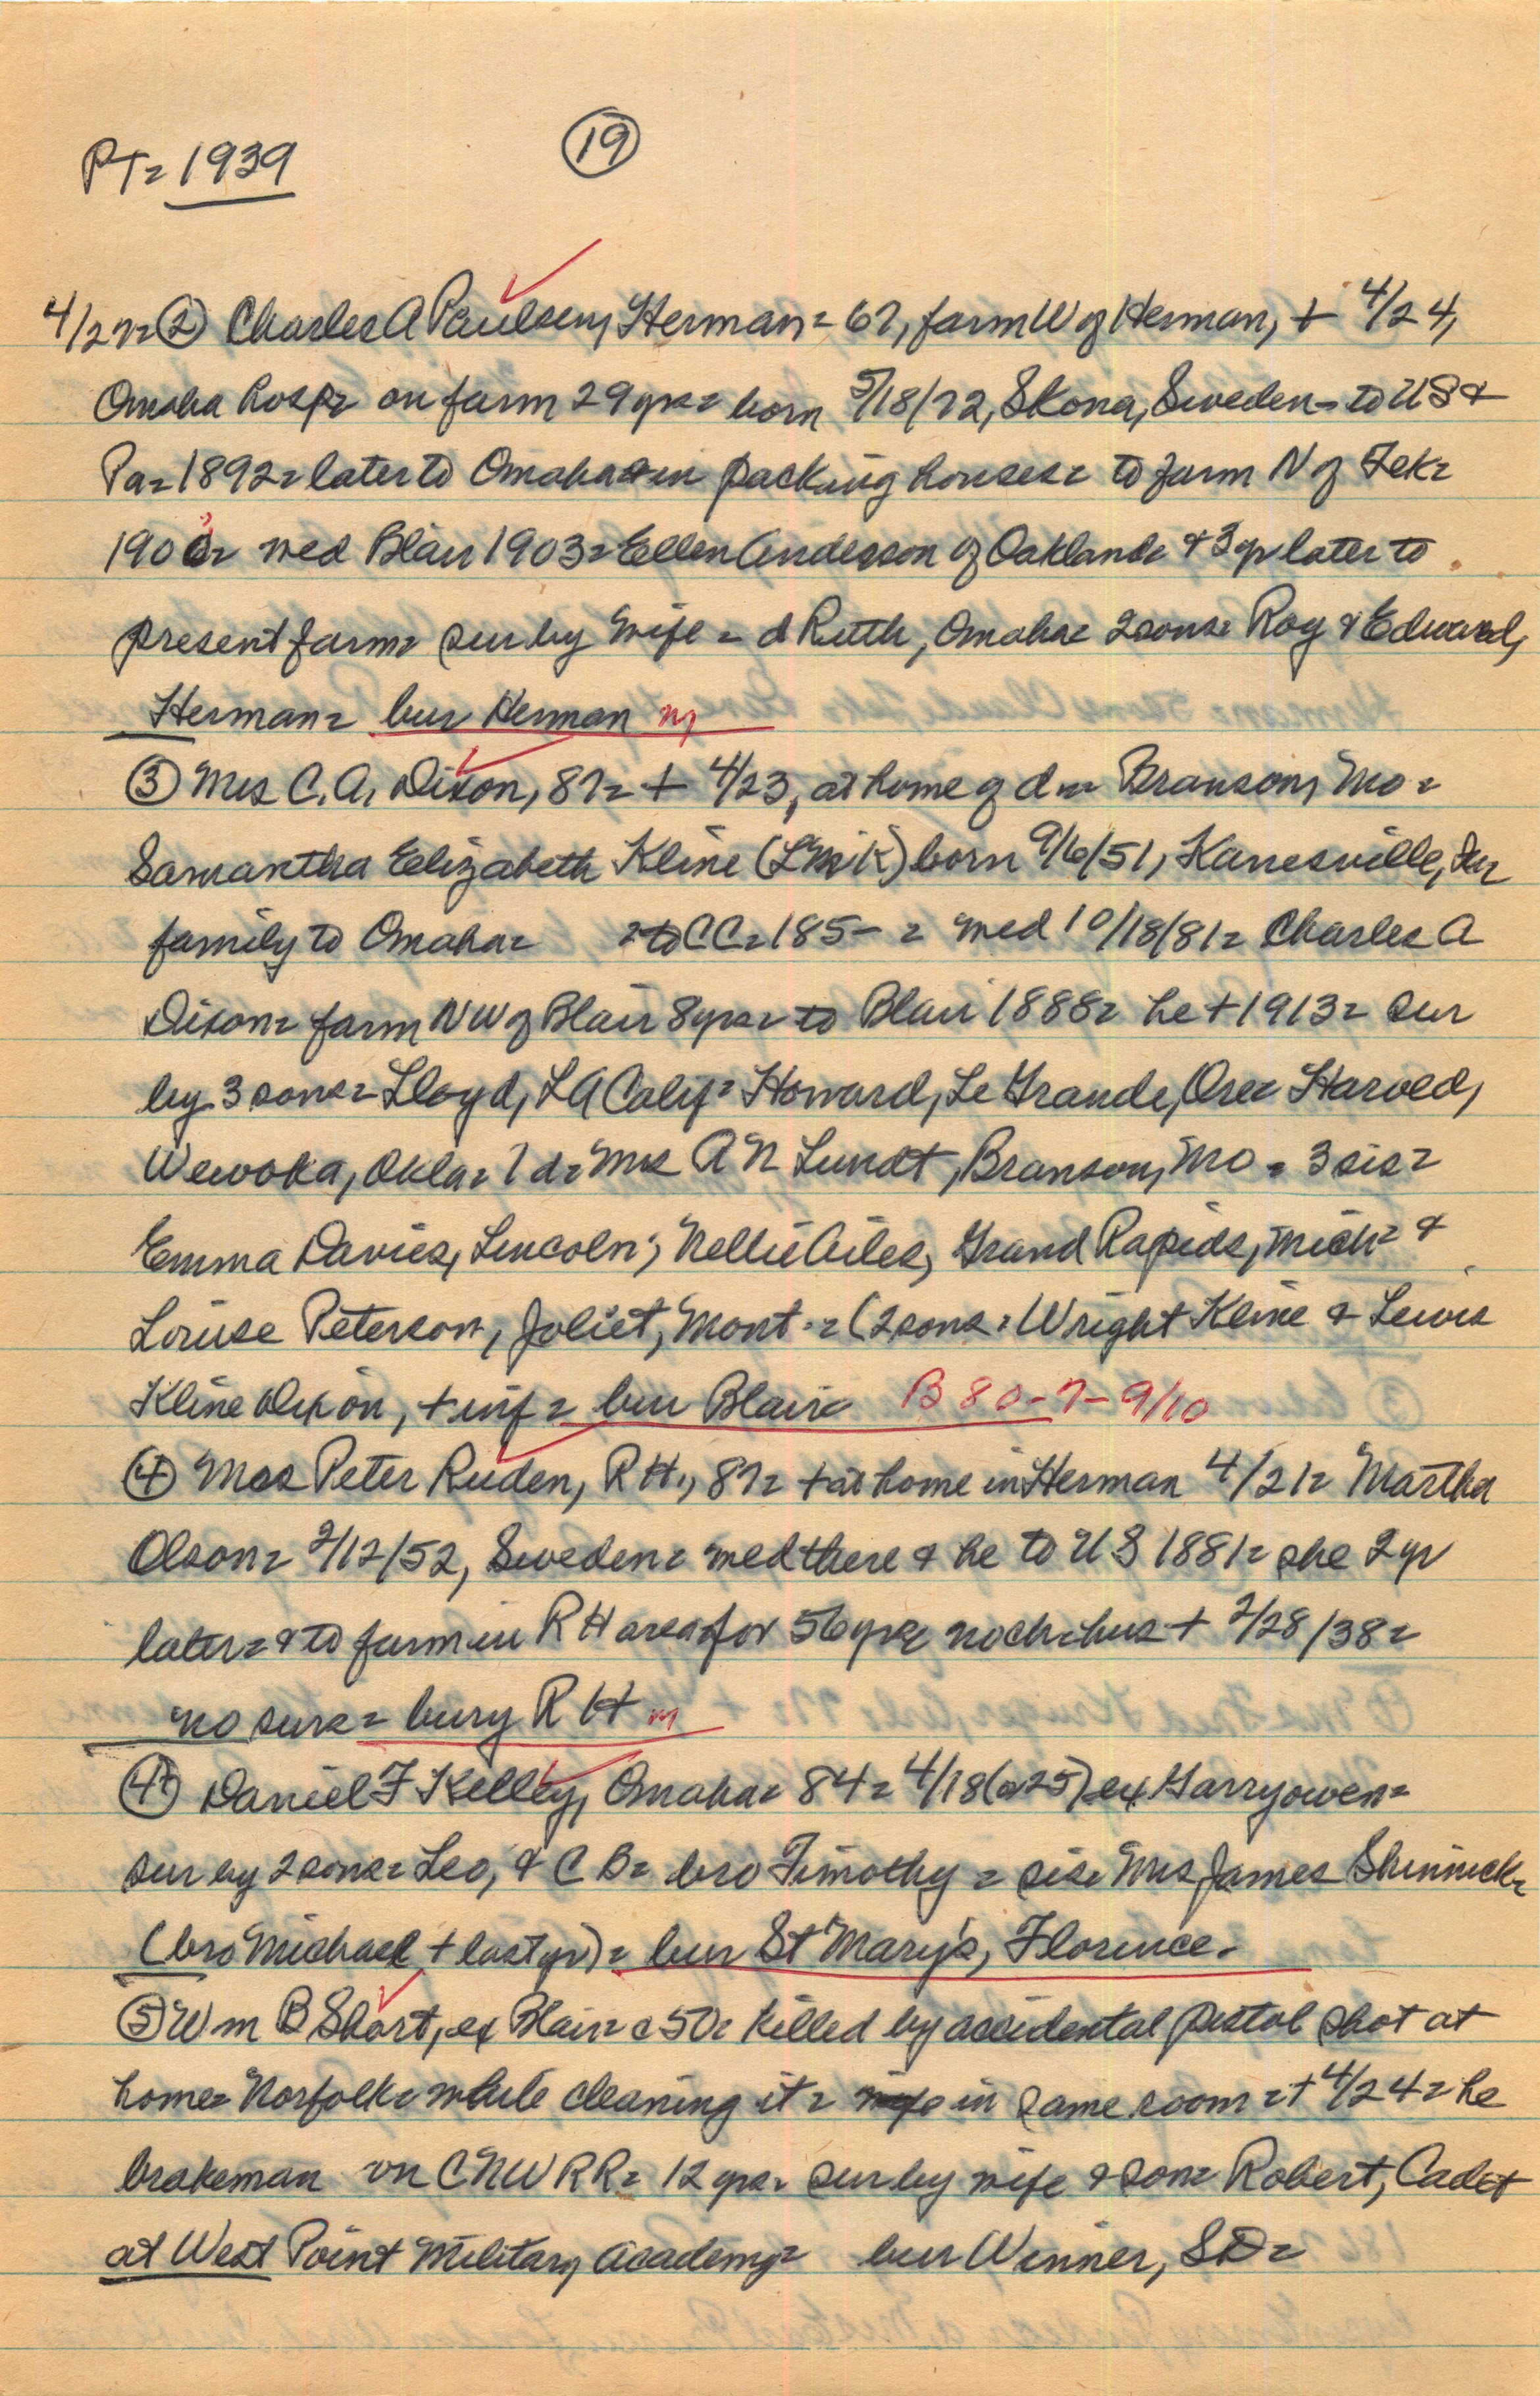 PT= 1939
19
4/27= ② Charles A Paulsen, Herman= 67, farm W of Herman, + 4/24,
Omaha hosp= on farm 29 yrs= born 5/18/72, Skona, Sweden= to US &
Pa= 1892= later to Omaha= in packing houses= to farm N of Tek=
1900= med Blair 1903= Ellen Anderson of Oakland= & 3 yr later to
present farm= sur by wife = d Ruth, Omaha= 2 sons= Roy & Edward,
Herman= bur Herman m
③ Mrs C. A. Dixon, 87= + 4/23, at home of d = Branson, Mo =
Samantha Elizabeth Kline (L M K) born 9/6/51, Kanesville,
family to Omaha= = to CC= 185- = med 10/18/81= Charles A
Dixon= farm NW of Blair 8 yrs= to Blair 1888= he + 1913= sur
by 3 sons= Lloyd, LA Calif= Howard, Le Grande, Ore= Harold,
Wewoka, Okla= 1 d= Mrs A N Lundt, Branson, Mo = 3 sis=
Emma Davies, Lincoln; Nellie Ailes, Grand Rapids, Mich= &
Louise Peterson, Joliet, Mont.= (2 sons= Wright Kline & Lewis
Kline Dixon, + inf = bur Blair= B 80-7-9/10
④ Mrs Peter Ruden, R H., 87= + at home in Herman 4/21= Martha
Olson= 2/12/52, Sweden= med there & he to U S 1881= she 2 yr
later= & to farm in R H area for 56 yrs= no ch= hus + 2/28/38=
no surs= bury R H m
④ Daniel F Kelley, Omaha= 84= 4/18 (or 25) ex Garryowen=
sur by 2 sons= Leo, & C B= bro Timothy = sis= Mrs James Shinnick=
(bro Michael + last yr)= bur St Mary's, Florence.
⑤ Wm B Short, ex Blair= c 50= killed by accidental pistol shot at
home= Norfolk= while cleaning it = wife in same room = + 4/24= he
brakeman on CNW RR= 12 yrs= sur by wife & son= Robert, Cadet
at West Point Military Academy= bur Winner, SD=